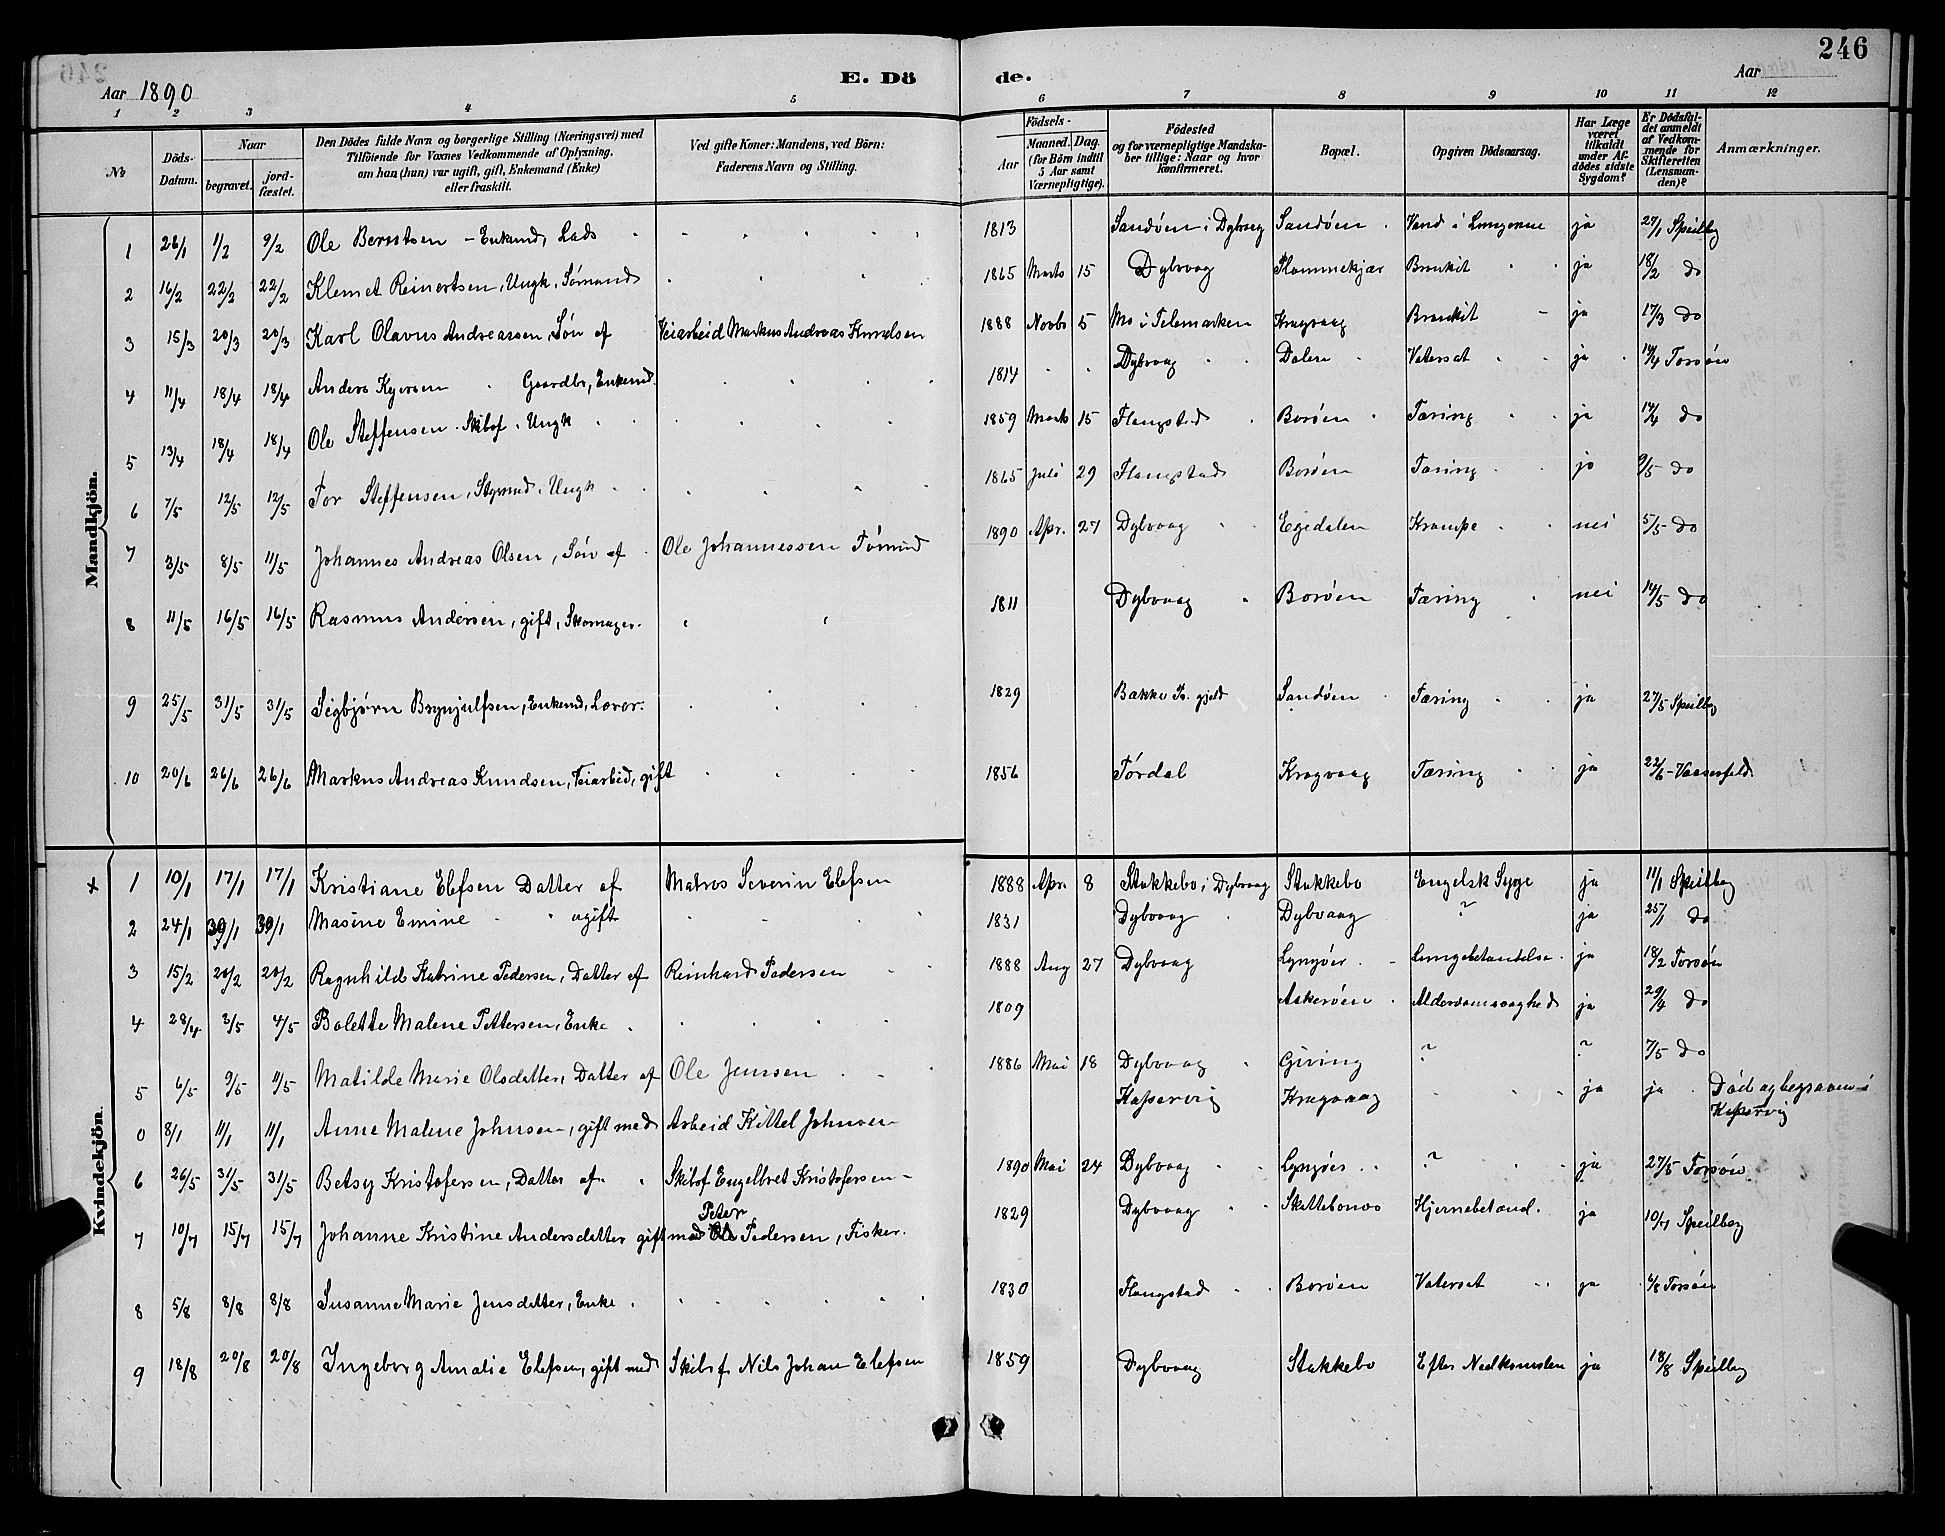 246
Aar 1890 E. Dö de. Aar
1 2 3 4 5 6 7 8 9 10 11 12
No
Döds-Datum.
Naar
begravet.
jord-fæstet.
Den Dödes fulde Navn og borgerlige Stilling (Næringsvei) med
Tilföiende for Voxnes Vedkommende af Oplysning,
om han (hun) var ugift, gift, Enkemand (Enke)
eller fraskilt.
Ved gifte Koner: Mandens, ved Börn:
Faderens Navn og Stilling.
Födsels-
Aar
Maaned. Dag.
(for Börn indtil
5 Aar samt
Værnepligtige).
Födested
og for værnepligtige Mandska-
ber tillige: Naar og hvor
konfirmeret.
Bopæl.
Opgiven Dödsaarsag.
Har Læge
været
tilkaldt
under Af-
dödes sidste
Sygdom?
Er Dödsfal-
det anmeldt
af Vedkom-
mende for
Skifteretten
(Lensman-
den)?
Anmærkninger.
Mandkjön.
1 26/1 1/2 9/2 Ole Berntsen - Enkemd, Lods 1813 Sandöen i Dybvag Sandöen Vand i Lungerne ja 27/1 Speilbg
2 16/2 22/2 22/2 Klemet Reinertsen, Ungk, Sömand 1865 Marts 15 Dybvaag Flammekjær Bronkit ja 18/2 do
3 15/3 20/3 20/3 Karl Olavus Andreassen, Sön af Veiarbeid Markus Andreas Knudsen 1888 Novbr 5 Mo i Telemarken Kragvaag Bronkit ja 17/3 do
4 11/4 18/4 18/4 Anders Gaardbr, Enkemd 1814 Dybvaag Dalen Vatersot ja 14/4 Torsön
5 13/4 18/4 18/4 Ole Steffensen Skibsf. Ungk 1859 Marts 15 Flangstad Borøen Tæring ja 14/4 do
6 7/5 12/5 12/5 Tor Steffensen, Styrmd, Ungk 1865 Juli 29 Flangstad Borøen Tæring ja 9/5 do
7 3/5 8/5 11/5 Johannes Andreas Olsen, Sön af Ole Johannessen Tömmd 1890 Apr. 27 Dybvaag Egedalen Krampe nei 5/5 do
8 11/5 16/5 16/5 Rasmus Andersen, gift, Skomager 1811 Dybvaag Borøen Tæring nei 14/5 do
9 25/5 31/5 31/5 Sigbjørn Brynjulfsen, Enkemd, 1829 Bakke Pr. gjeld Sandöen Tæring ja 27/5 Speilbg
10 20/6 26/6 26/6 Markus Andreas Knudsen, Veiarbeid, gift 1856 Tördal Kragvaag Tæring ja 22/6 - Vaaserfeld
Kvindekjön.
× 1 10/1 17/1 17/1 Kristiane Elefsen Datter af Matros Severin Elefsen 1888 Apr. 8 Stokkebo i Dybvaag Stokkebo Engelsk Syge ja 11/1 Speilbg
2 24/1 30/1 30/1 Masine Emine ugift 1831 Dybvaag Dybvaag ? ja 25/1 do
3 15/2 20/2 20/2 Ragnhild Katrine Pedersen, Datter af Reinhard Pedersen 1888 Aug 27 Dybvaag Lyngöer Lungebetændelse ja 18/2 Torsön
4 28/4 3/5 4/5 Bolette Malene Pettersen, Enke 1809 Askerøen Alderdomssvaghed ja 29/4 do
5 6/5 9/5 11/5 Matilde Marie Olsdatter, Datter af Ole Jensen 1886 Mai 18 Dybvaag Giving ? ? 7/5 do
0 8/1 11/1 11/1 Anne Malene Johnsen, gift med Arbeid Kittel Johnsen Kaservig Kragvaag ja ja Död og begraven i
Kaservig
6 26/5 31/5 31/5 Betsy Kristofersen, Datter af Skibsf Engelbret Kristofersen 1890 Mai 24 Dybvaag Lyngöer ? ja 27/5 Torsön
7 10/7 15/7 15/7 Johanne Kristine Andersdatter gift med Peter Pedersen, Fisker. 1829 Dybvaag Hjernebetænd. ja 10/7 Speilbg
8 5/8 8/8 8/8 Susanne Marie Jensdatter, Enke 1830 Flangstad Borøen Vatersot ja 6/8 Torsön
9 18/8 20/8 20/8 Ingeborg Amalie Elefsen, gift med Skibsf Nils Johan Elefsen 1859 Dybvaag Stokkebo Efter Nedkomsten ja 18/8 Speilbg